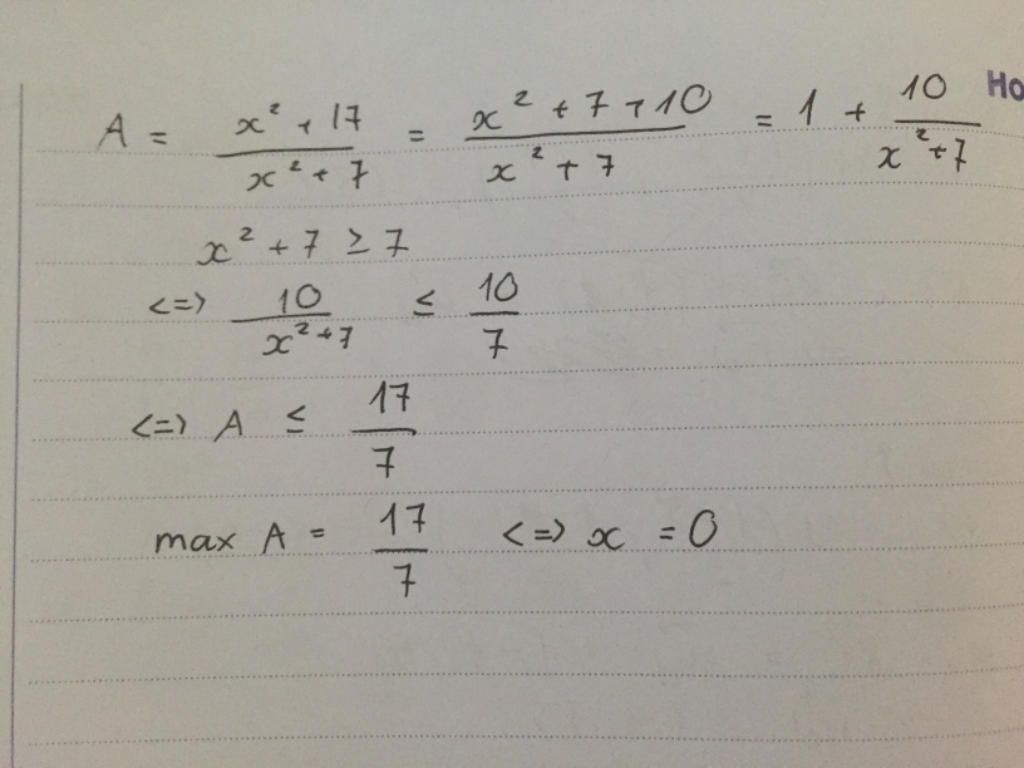 A = x² + 17 / x² + 7 = x² + 7 + 10 / x² + 7 = 1 + 10 / x² + 7 Ho
x² + 7 ≥ 7
<=> 10 / x² + 7 ≤ 10 / 7
<=> A ≤ 17 / 7
max A = 17 / 7 <=> x = 0